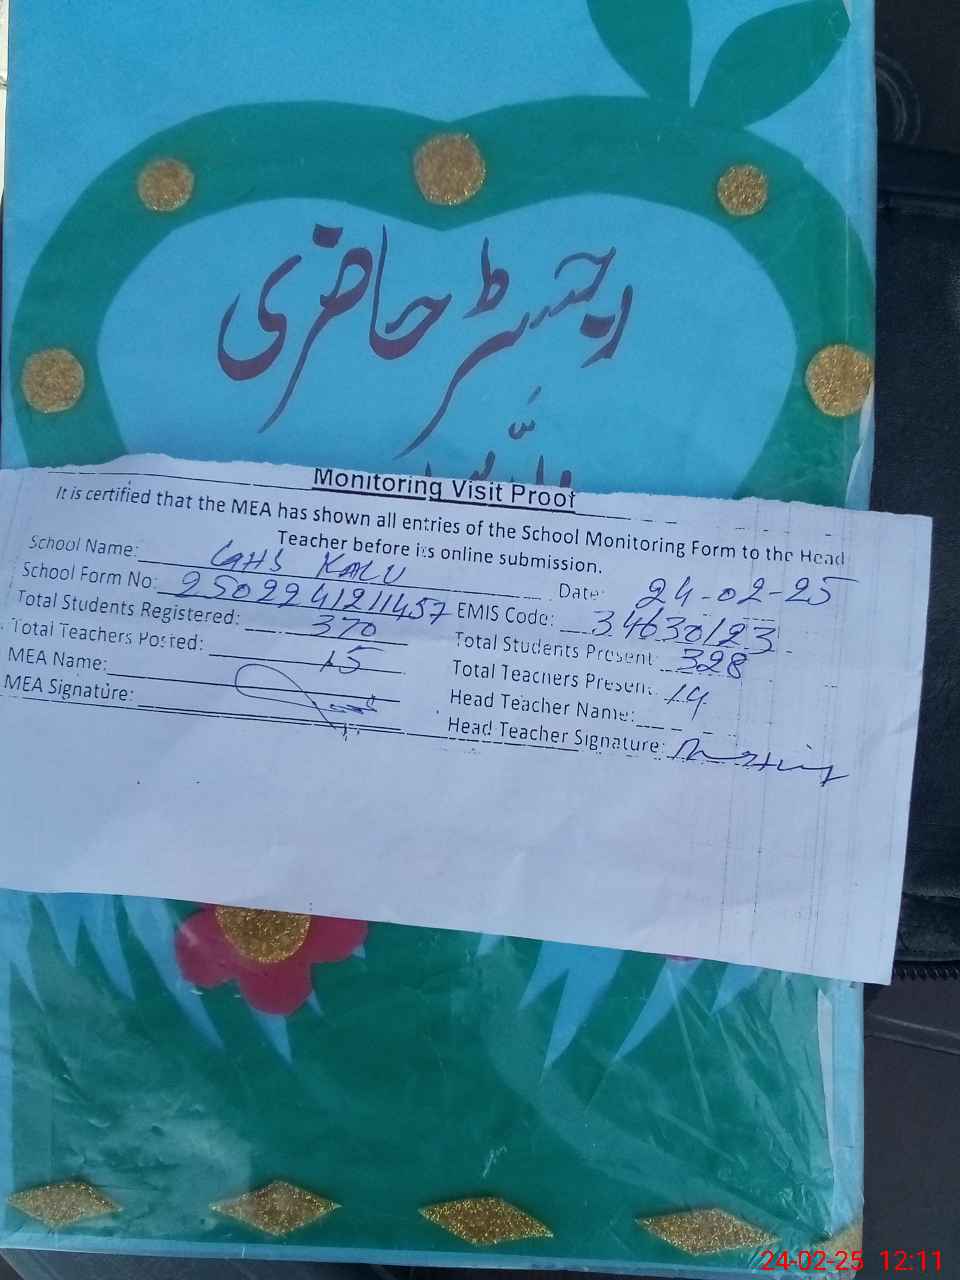 رجسٹر حاضری
Monitoring Visit Proof
It is certified that the MEA has shown all entries of the School Monitoring Form to the Head
Teacher before its online submission.
School Name: GHS KALU Date: 24-02-25
School Form No: 2502241211457 EMIS Code: 34630123
Total Students Registered: 370 Total Students Present: 328
Total Teachers Posted: 15 Total Teachers Present: 14
MEA Name: Head Teacher Name:
MEA Signature: Head Teacher Signature:
24-02-25 12:11